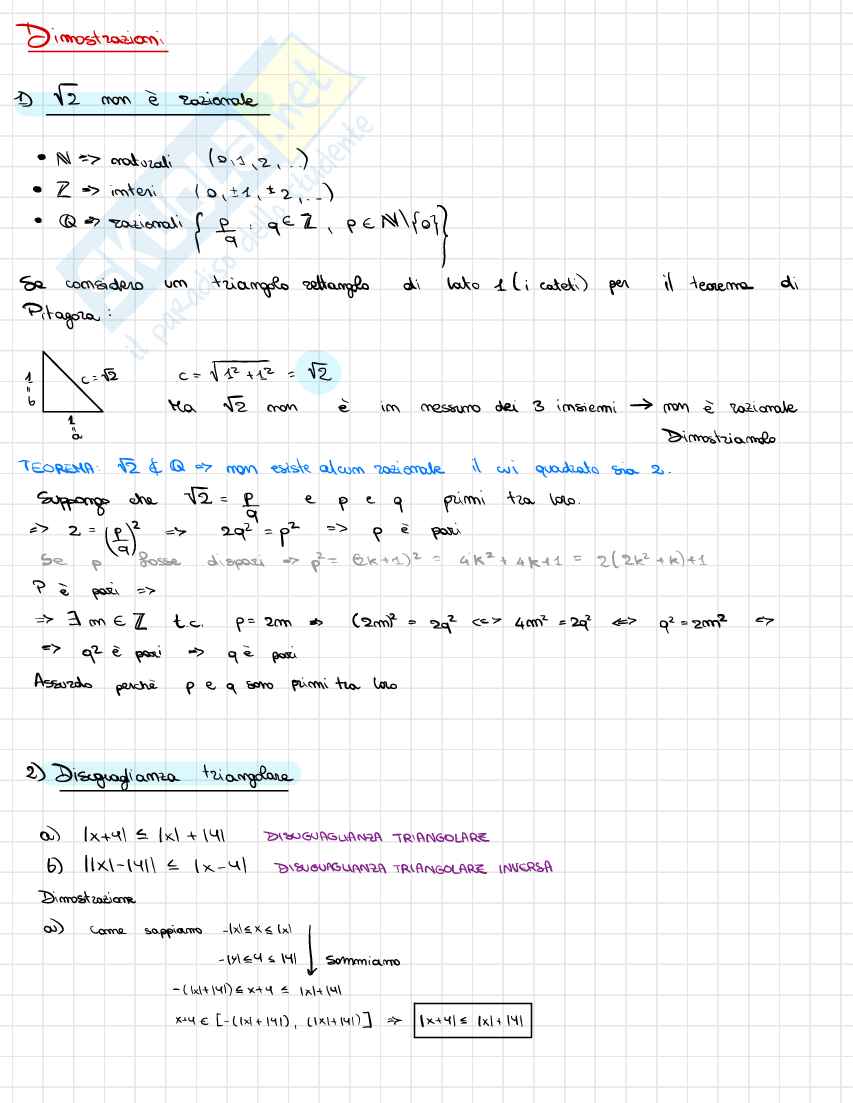 Dimostrazioni
1) √2 non è razionale
• ℕ => naturali (0,1,2,...)
• ℤ => interi (0,±1,±2,...)
• ℚ => razionali { p/q : q ∈ ℤ, p ∈ ℕ\{0} }
Se considero un triangolo rettangolo di lato 1 (i cateti) per il teorema di
Pitagora:
1 = b
c = √2
1 = a
c = √1² + 1² = √2
Ma √2 non è in nessuno dei 3 insiemi → non è razionale
Dimostriamolo
TEOREMA: √2 ∉ ℚ => non esiste alcun razionale il cui quadrato sia 2.
Suppongo che √2 = p/q e p e q primi tra loro.
=> 2 = (p/q)² => 2q² = p² => p è pari
Se p fosse dispari => p² = (2k+1)² = 4k² + 4k+1 = 2(2k² + k)+1
P è pari =>
=> ∃ m ∈ ℤ t.c. p = 2m => (2m)² = 2q² <=> 4m² = 2q² <=> q² = 2m² <=>
=> q² è pari => q è pari
Assurdo perchè p e q sono primi tra loro
2) Diseguaglianza triangolare
a) |x+y| ≤ |x| + |y| DISUGUAGLIANZA TRIANGOLARE
b) ||x|-|y|| ≤ |x-y| DISUGUAGLIANZA TRIANGOLARE INVERSA
Dimostrazione
a) Come sappiamo -|x| ≤ x ≤ |x|
-|y| ≤ y ≤ |y| sommiamo
-(|x|+|y|) ≤ x+y ≤ |x|+|y|
x+y ∈ [-(|x|+|y|), (|x|+|y|)] => |x+y| ≤ |x|+|y|
SKUOLA.net
il paradiso dello studente